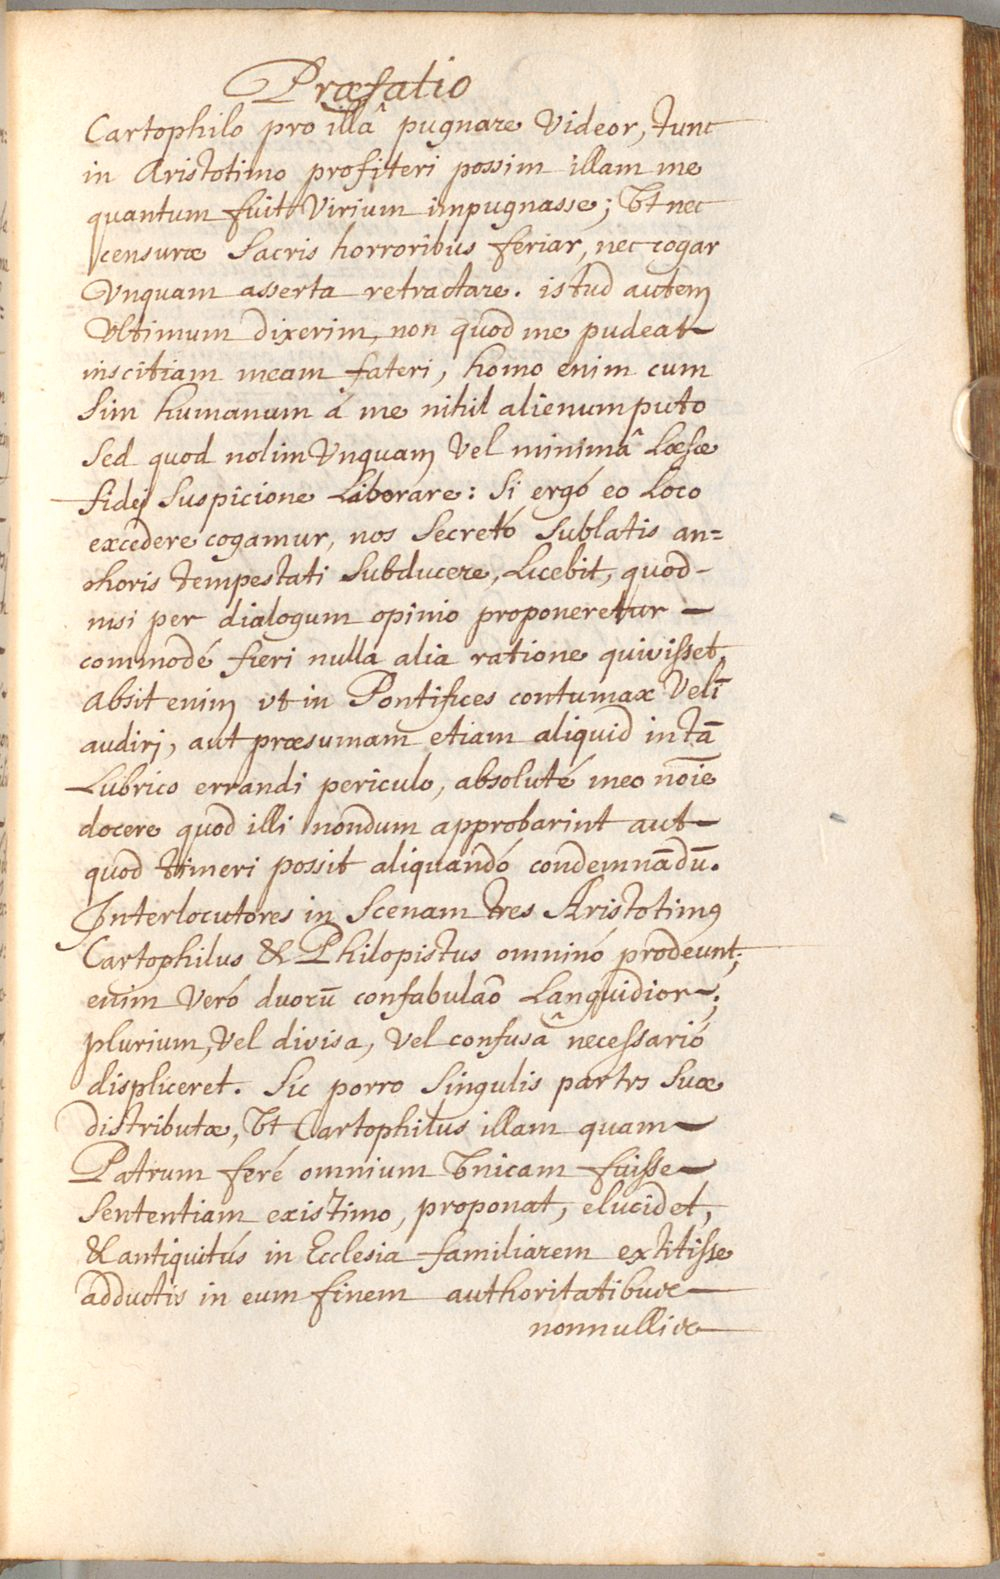 Præfatio
Cartophilo pro illâ pugnare Videor, tunc
in Aristotimo profiteri possim illam me
quantum fuit Virium impugnasse; Vt nec
censuræ Sacris horroribus feriar, nec cogar
Vnquam asserta retractare. istud autem
Vltimum dixerim, non quod me pudeat
inscitiam meam fateri, homo enim cum
Sim humanum á me nihil alienum puto
Sed quod nolim Vnquam Vel minimâ Læsæ
fidei Suspicione Laborare: Si ergó eo Loco
excedere cogamur, nos Secretó Sublatis an=
choris tempestati Subducere, Licebit, quod
nisi per dialogum opinio proponeretur
commodé fieri nulla alia ratione quivisset.
Absit enim vt in Pontifices contumax Velī
audiri, aut præsumam etiam aliquid in tā
Lubrico errandi periculo, absoluté meo nōie
docere quod illi nondum approbarint aut
quod timeri possit aliquandó condemnādū.
Interlocutores in Scenam tres Aristotimꝰ
Cartophilus & Philopistus omninó prodeunt;
enim Veró duorū confabulaō Languidior;
plurium, Vel divisa, Vel confusâ necessarió
displiceret. Sic porro Singulis partes Suæ
distributæ, Vt Cartophilus illam quam
Patrum feré omnium Vnicam fuisse
Sententiam existimo, proponat, elucidet,
& antiquitús in Ecclesia familiarem extitisse
adductis in eum finem authoritatibus
nonnullis